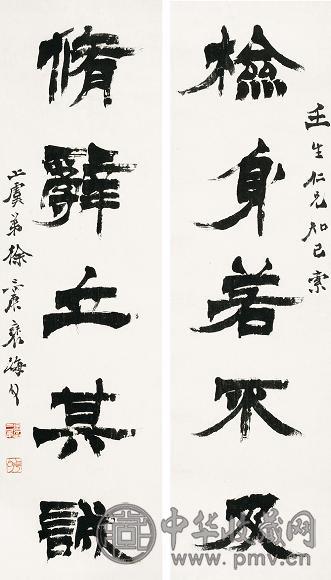 壬生仁兄知己索
檢身若不及
脩辭立其誠
上虞弟徐三庚褎海父
中华收藏网
www.pmv.cn